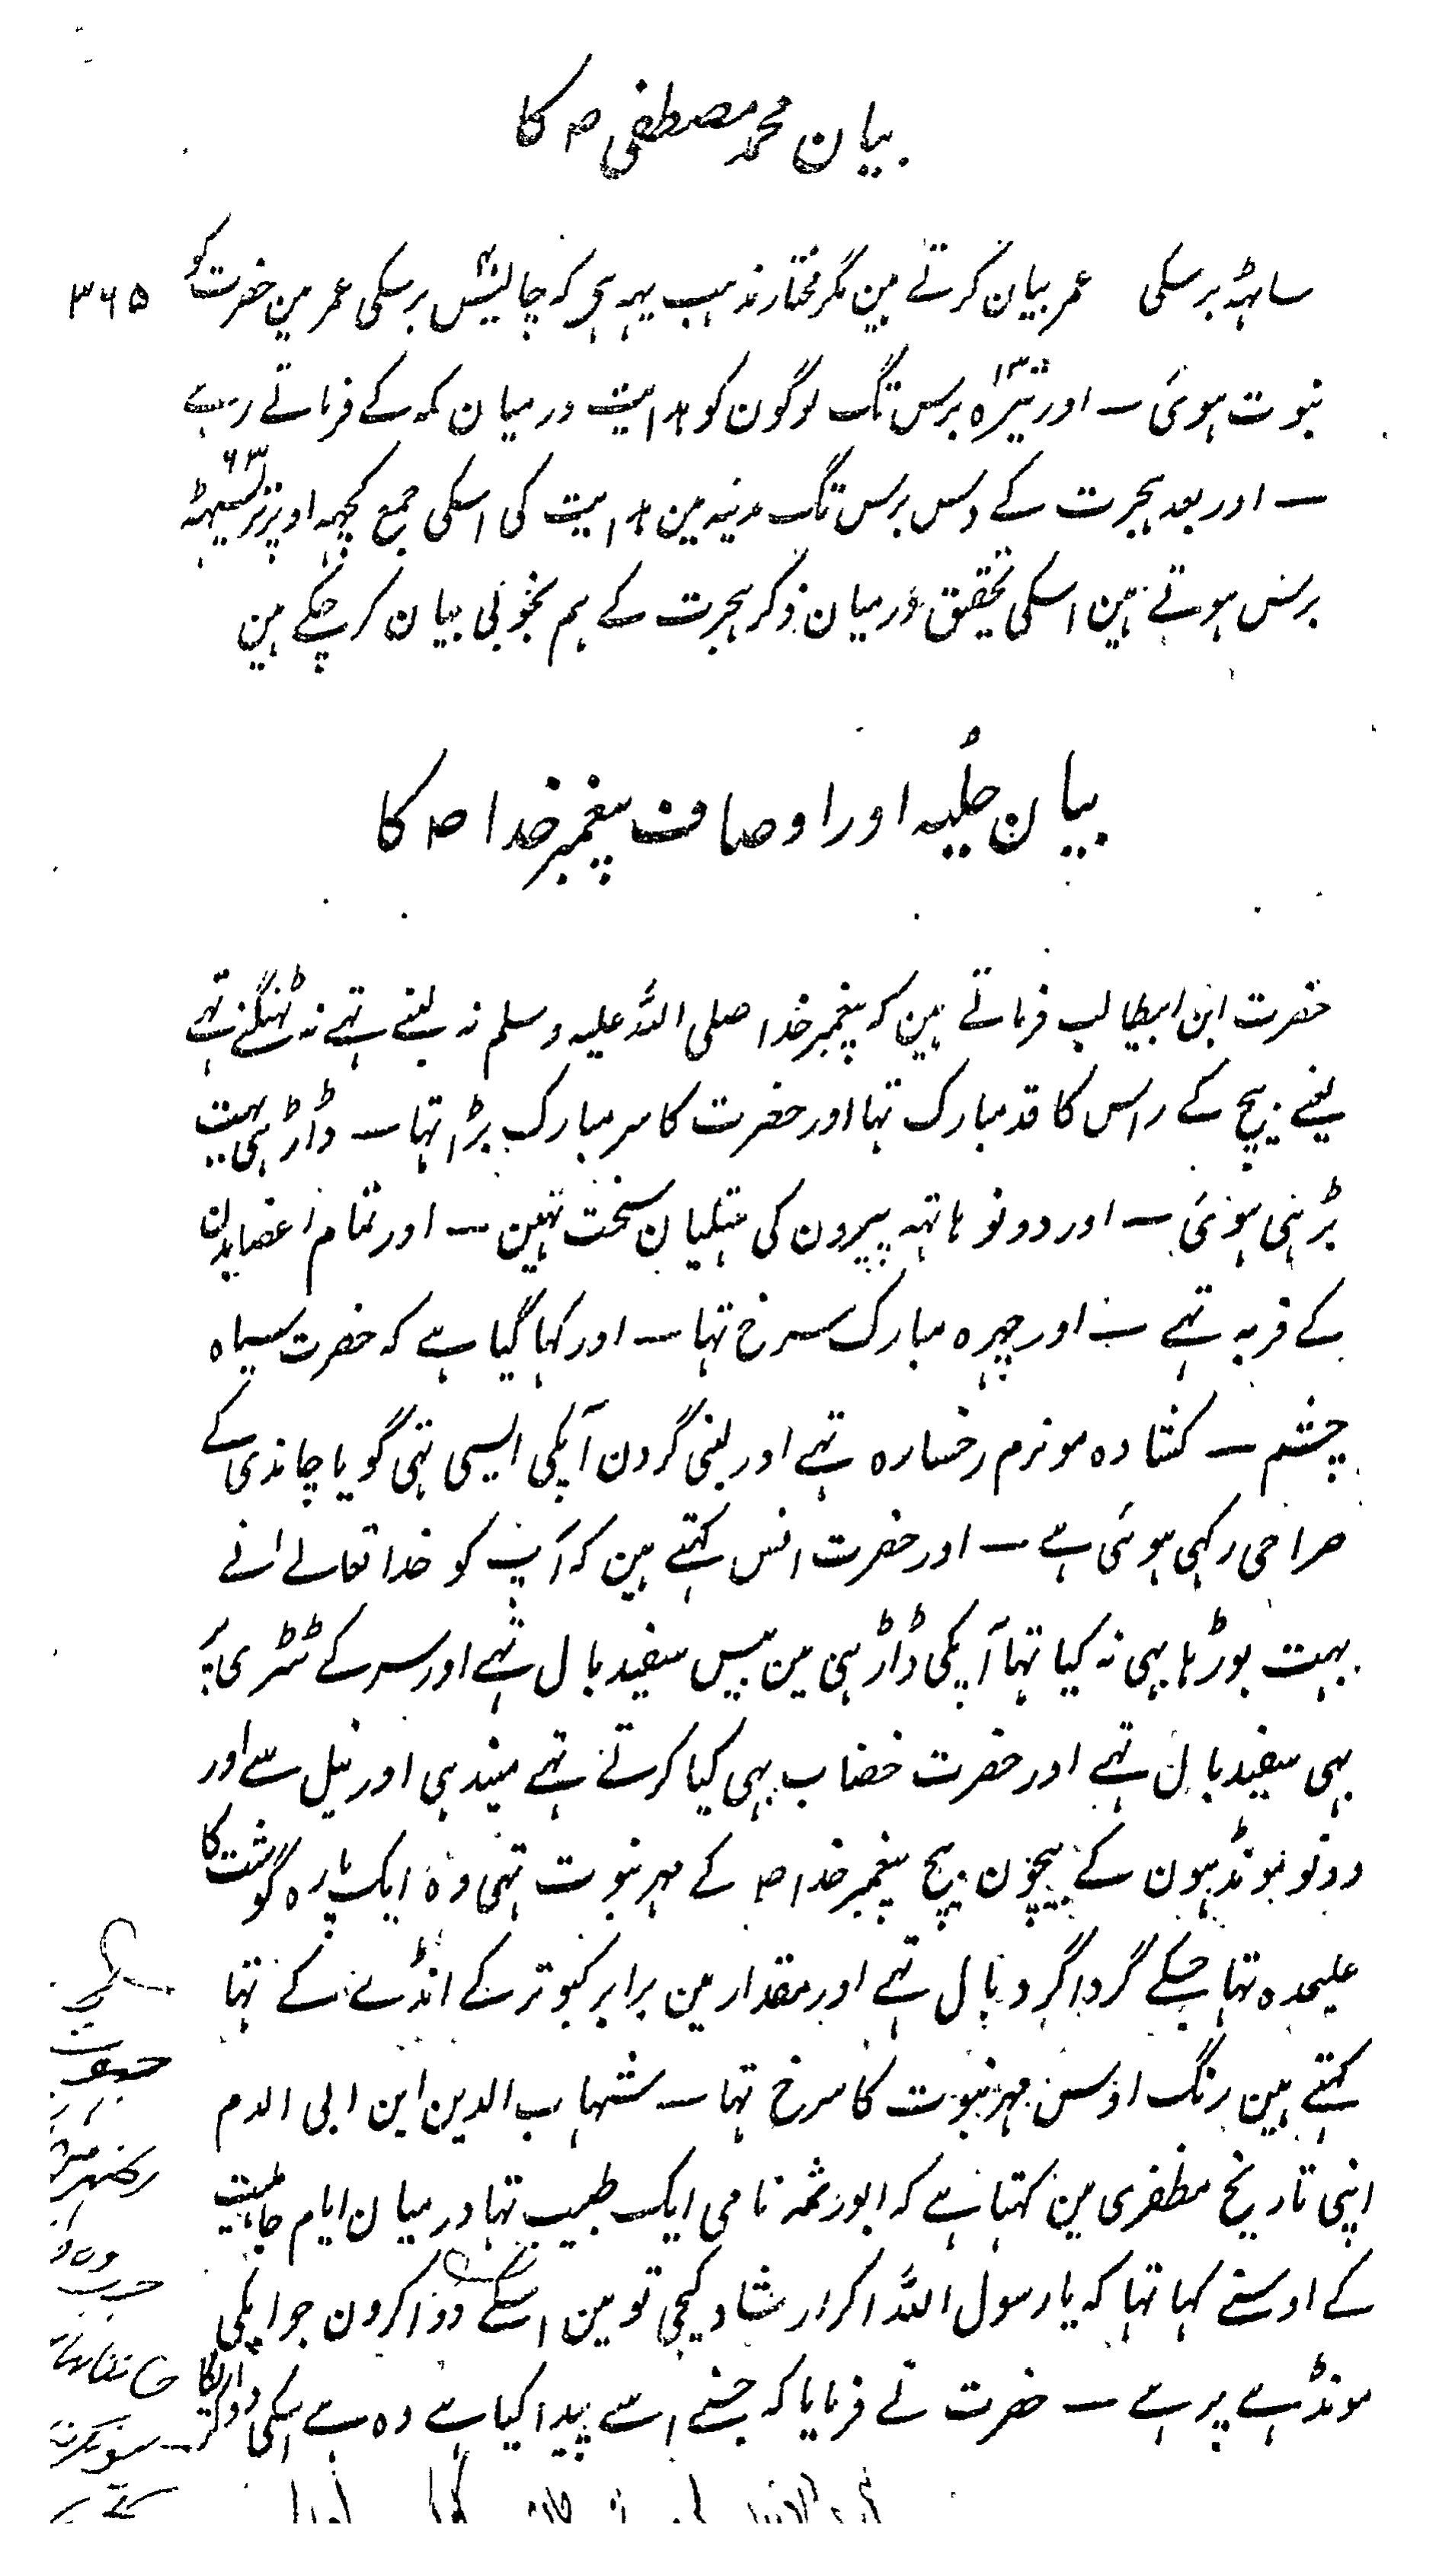 بیان محمد مصطفی ص کا
ساٹہہ برسکی عمر بیان کرتے ہین مگر مختار مذہب یہہ ہی کہ چالیس برسکی عمر مین حضرت کو
۳۶۵
نبوت ہوئی ــ اور تیرہ ۱۳ برس تک لوگون کو ہدایت درمیان مکہ کے فرماتے رہے
ــ اور بعد ہجرت کے دس برس تک مدینہ مین ہدایت کی اسکی جمع کچہہ اوپر ترسیٹہہ ۶۳
برس ہوتے ہین اسکی تحقیق درمیان ذکر ہجرت کے ہم بخوبی بیان کر چکے ہین
بیان حلیہ اور اوصاف پیغمبر خدا ص کا
حضرت ابن ابیطالب فرماتے ہین کہ پیغمبر خدا صلی اللہ علیہ وسلم نہ لنبے تہے نہ ٹہنگنے تہے
لیعنے بیچ کے راس کا قد مبارک تہا اور حضرت کا سر مبارک بڑا تہا ــ ڈاڑہی بہت
بڑہنی ہوئی ــ اور دونو ہاتہہ پیرون کی ہتلیان سخت تہین ــ اور تمام اعضا بدن
کے فربہ تہے ــ اور چہرہ مبارک سرخ تہا ــ اور کہا گیا ہے کہ حضرت سیاہ
چشم ــ کشادہ مو نرم رخسارہ تہے اور لنبی گردن آپکی ایسی تہی گویا چاندی کے
صراحی رکہی ہوئی ہے ــ اور حضرت انس کہتے ہین کہ آپ کو خدا تعالے انے
بہت بوڑہا بہی نہ کیا تہا آپکی ڈاڑہی مین بیس سفید بال تہے اور سر کے ٹٹری پر
بہی سفید بال تہے اور حضرت خضاب بہی کیا کرتے تہے میندہی اور نیل سے اور
دونو مونڈہون کے بیچون بیچ پیغمبر خدا ص کے مہر نبوت تہی وہ ایک پارہ گوشت کا
علیحدہ تہا جسکے گردا گرد بال تہے اور مقدار مین برابر کبوتر کے انڈے کے تہا
کہتے ہین رنگ اوس مہر نبوت کا سرخ تہا ــ شہاب الدین ابن ابی الدم
اپنی تاریخ مظفری مین کہتا ہے کہ ابو رثمہ نامی ایک طبیب تہا درمیان ایام جاہلیت
کے اوسنے کہا تہا کہ یا رسول اللہ اکر ارشاد کیجی تو مین اسکے دوا کرون جو اپکی
مونڈہے پر ہے ــ حضرت نے فرمایا کہ جسنے اسے پیدا کیا ہے وہ ہے اسکی